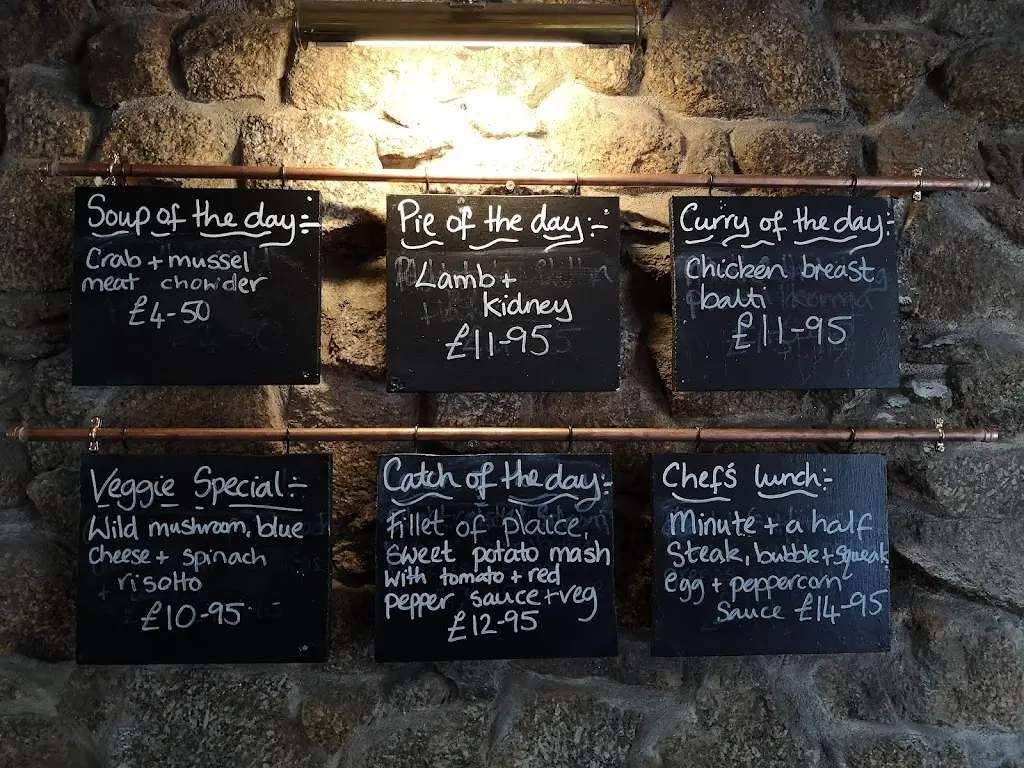 Soup of the day:-
Crab + mussel
meat chowder
£4-50
Pie of the day:-
Lamb +
kidney
£11-95
Curry of the day:-
Chicken breast
balti
£11-95
Veggie Special:-
Wild mushroom, blue
cheese + spinach
risotto
£10-95
Catch of the day:-
Fillet of plaice,
sweet potato mash
with tomato + red
pepper sauce + veg
£12-95
Chefs lunch:-
Minute + a half
Steak, bubble + squeak
egg + peppercorn
Sauce £14-95